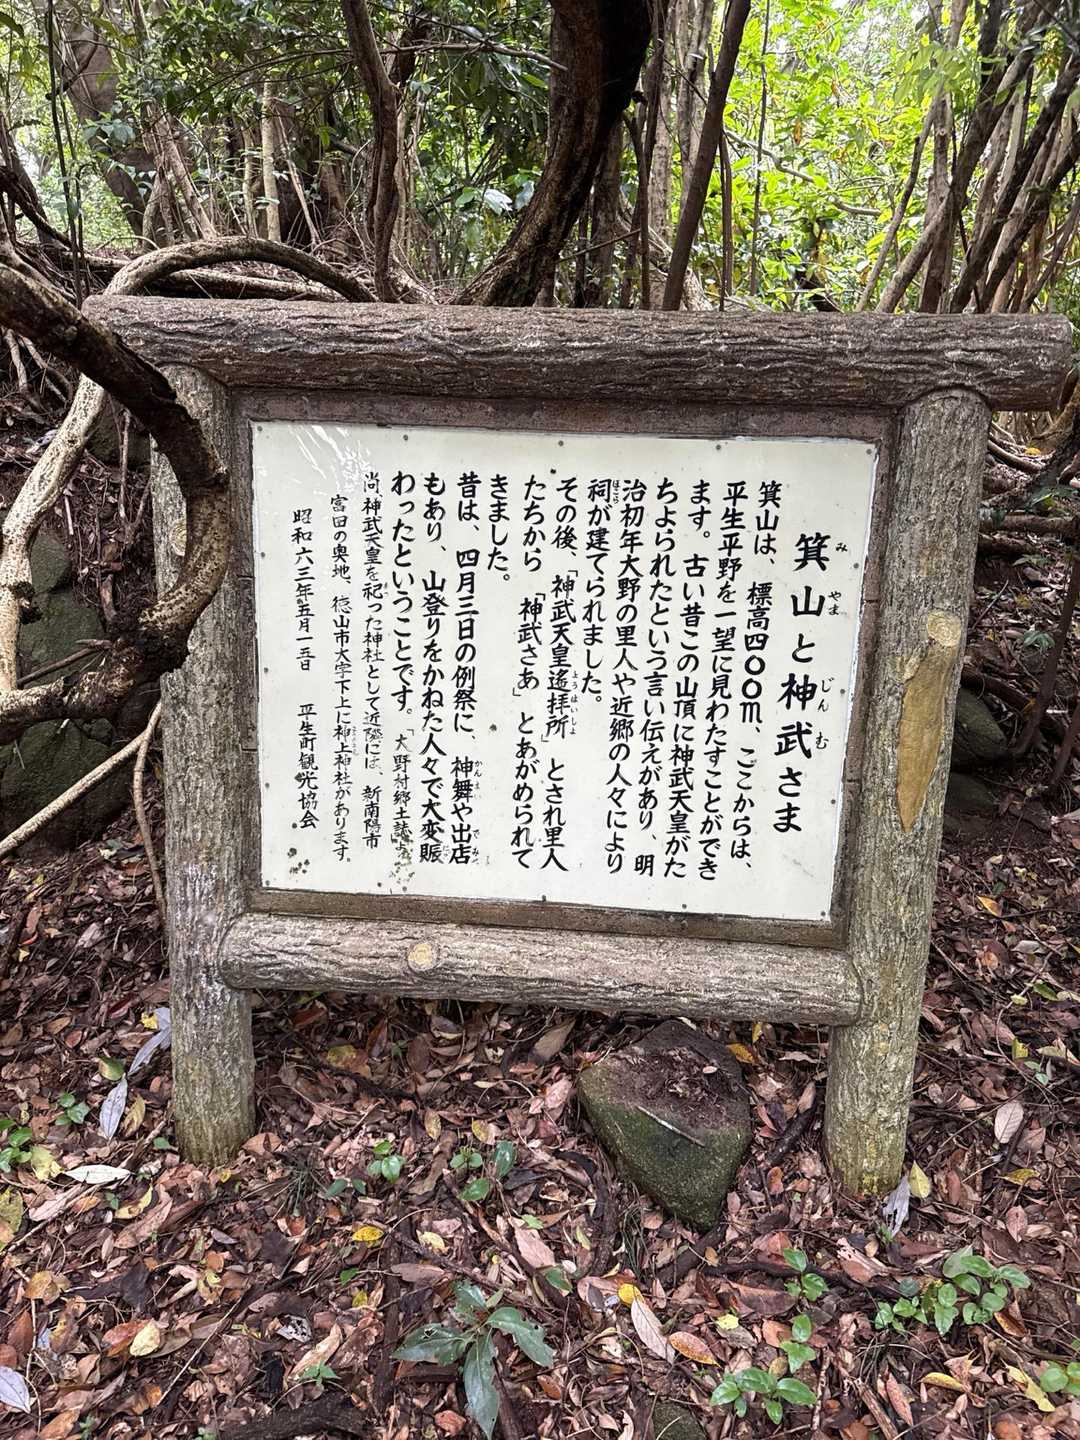 箕山と神武さま
箕山は、標高四〇〇m、ここからは、
平生平野を一望に見わたすことができ
ます。古い昔この山頂に神武天皇がた
ちよられたという言い伝えがあり、明
治初年大野の里人や近郷の人々により
祠が建てられました。
その後、「神武天皇遙拝所」とされ里人
たちから「神武さあ」とあがめられて
きました。
昔は、四月三日の例祭に、神舞や出店
もあり、山登りをかねた人々で大変賑
わったということです。「大野村郷土誌」
尚、神武天皇を祀った神社として近隣には、新南陽市
富田の奥地、徳山市大字下上に神上神社があります。
昭和六三年五月一五日　平生町観光協会